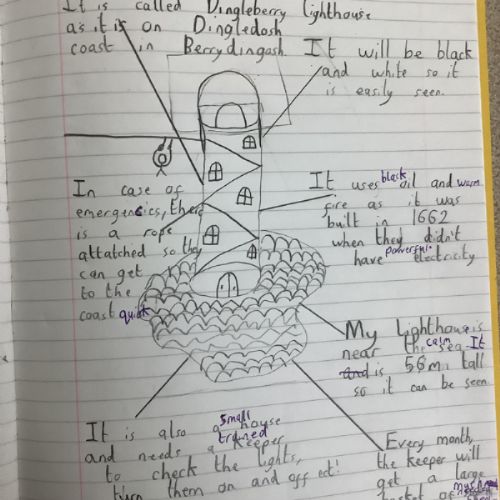 It is called Dingleberry lighthouse
as it is on Dingledosh
coast in Berrydingash.
It will be black
and white so it
is easily seen.
In case of
emergencics, there
is a rope
attatched so they
can get
to the
coast quick
It uses black oil and warm
fire as it was
built in 1662
when they didn't
have powerful electricity
My lighthouse is
near the calm sea. It
and is 56m tall
so it can be seen
It is also a small house
and needs a trained keeper
to check the lights,
turn them on and off ect!
Every month
the keeper will
get a large